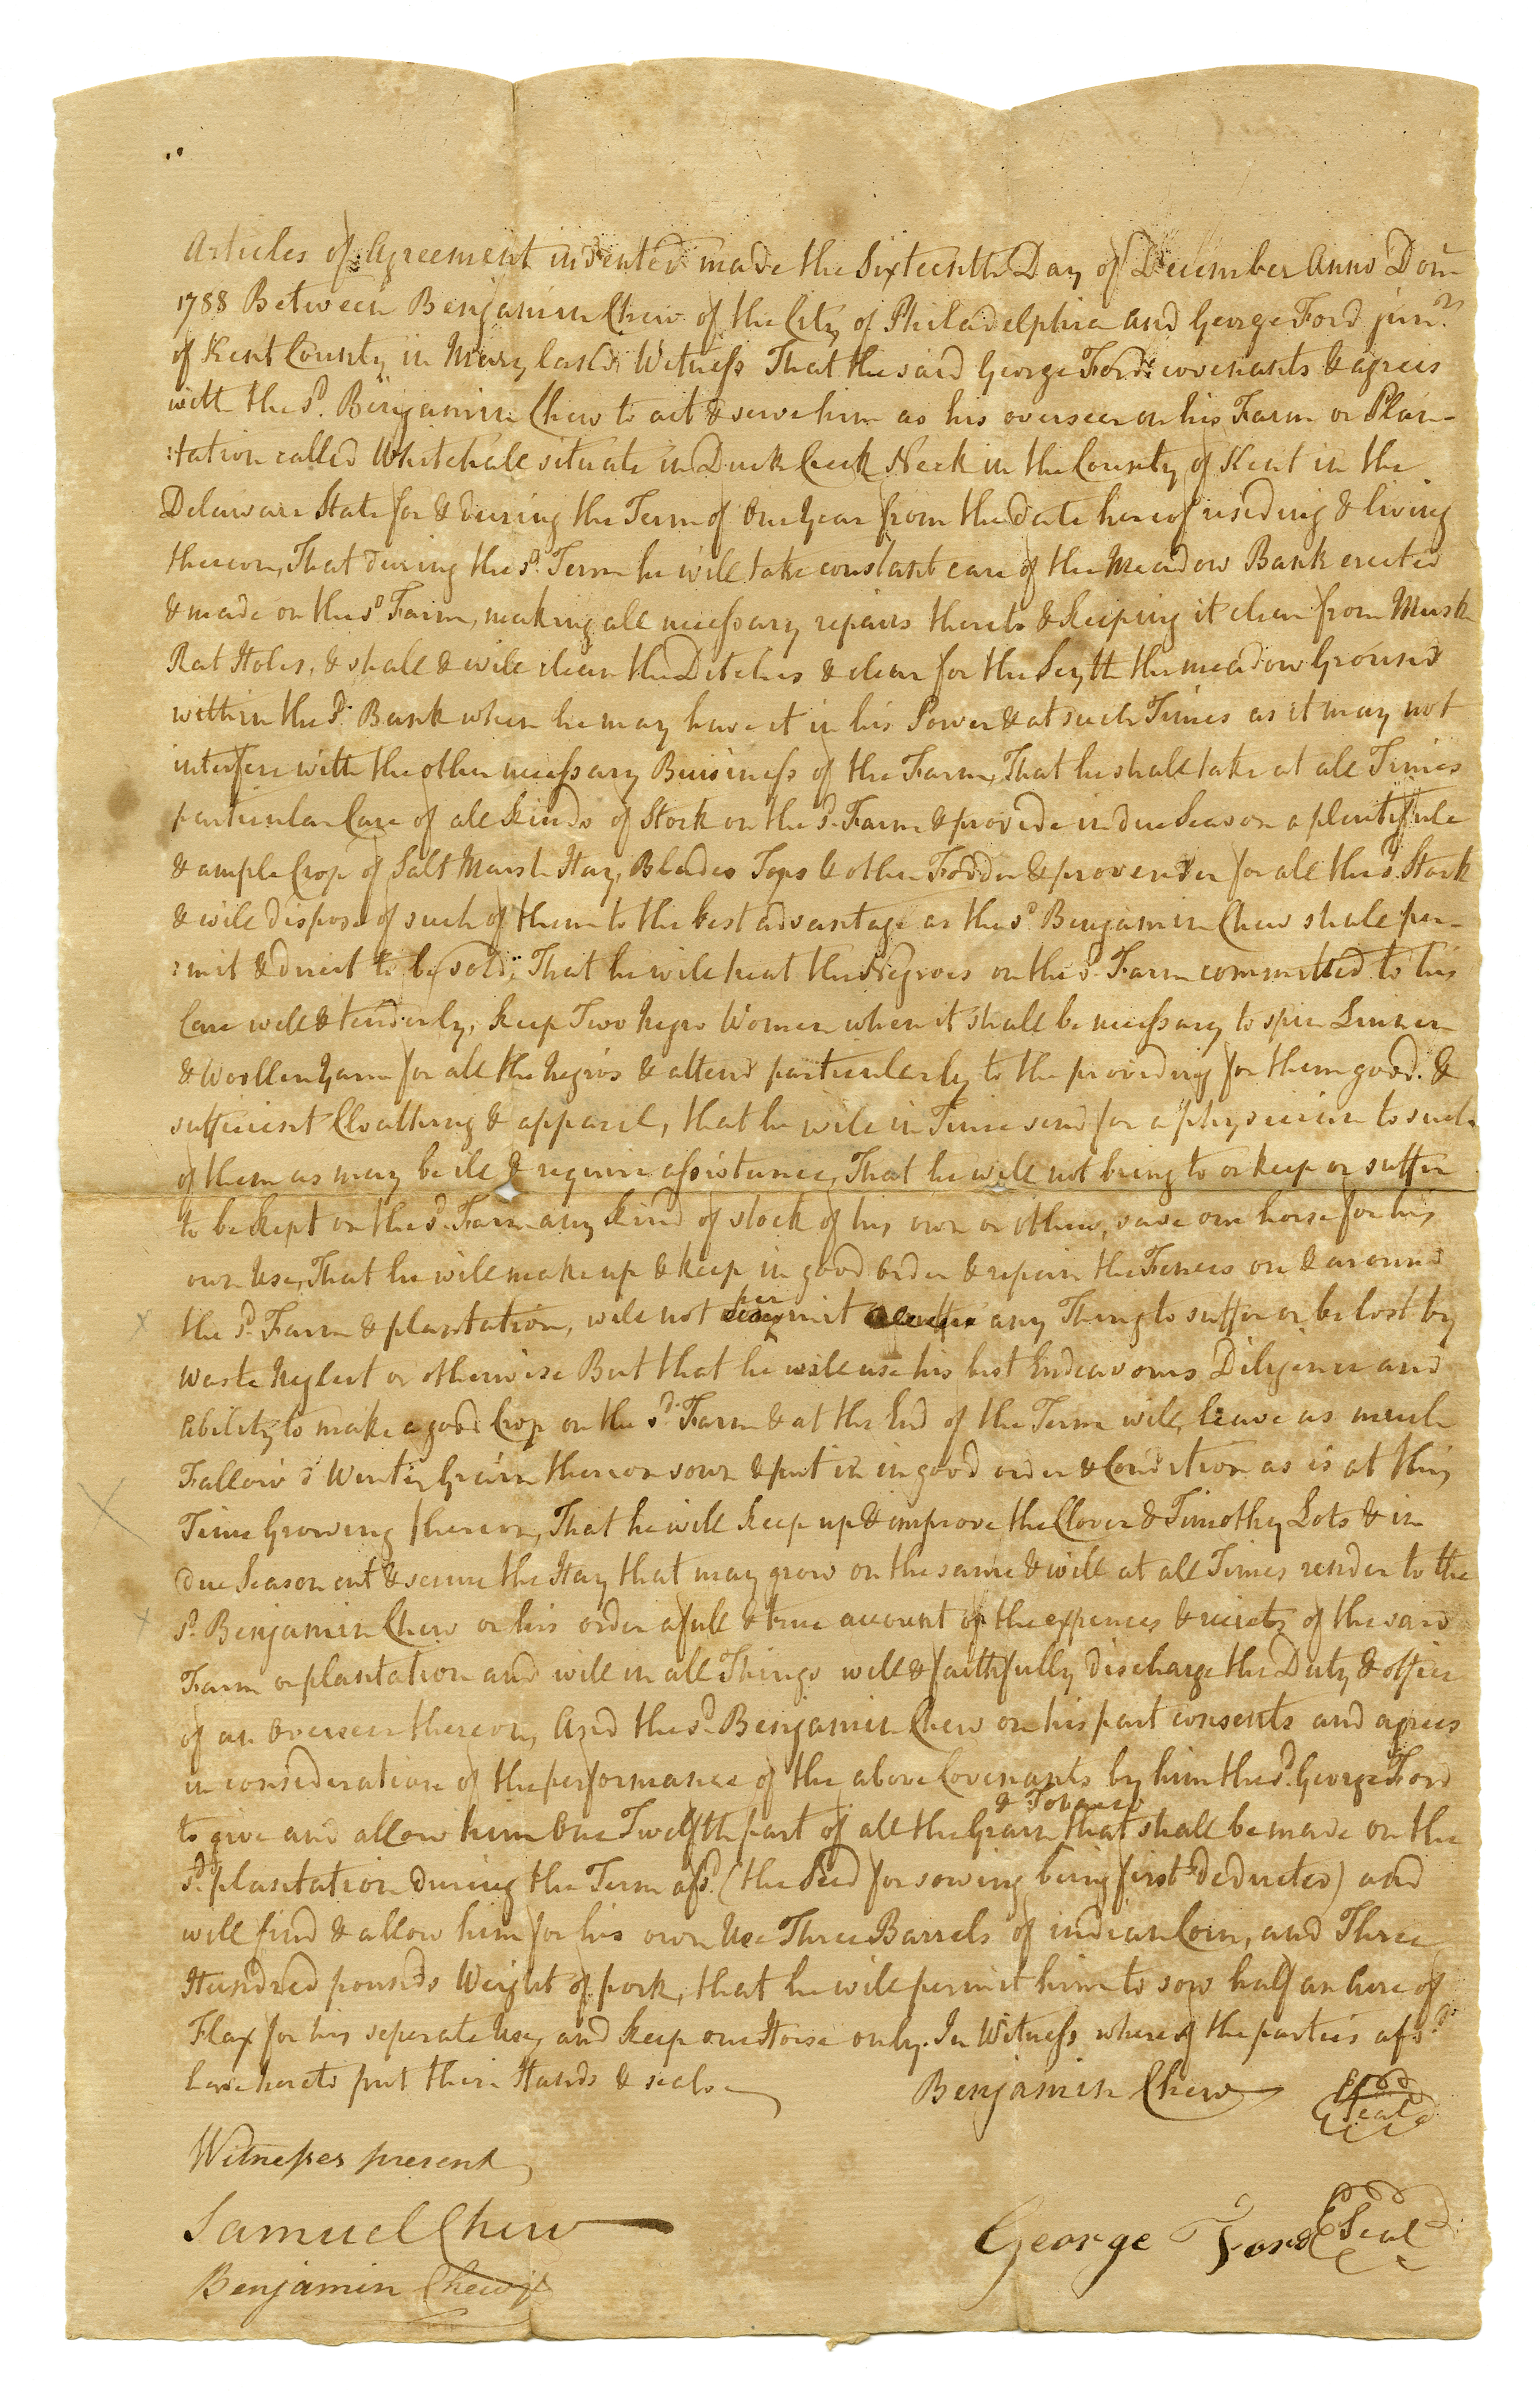 Articles of Agreement indented made the Sixteenth Day of December Anno Dom
1788 Between Benjamin Chew of the City of Philadelphia and George Ford junr.
of Kent County in Maryland Witness That the said George Ford covenants & agrees
with the sd. Benjamin Chew to act & serve him as his overseer on his Farm or Plan-
:tation called Whitehall situate in Duck Creek Neck in the County of Kent in the
Delaware State for & during the Term of One Year from the date hereof residing & living
thereon, That during the sd. Term he will take constant care of the Meadow Bank erected
& made on the sd Farm, making all necessary repairs thereto & keeping it clear from Musk
Rat Holes, & shall & will clean the Ditches & clear for the Scyth the meadow Ground
within the sd. Bank when he may have it in his Power & at such Times as it may not
interfere with the other necessary Buisiness of the Farm, That he shall take at all Times
particular Care of all kinds of Stock on the sd. Farm & provide in due Season a plentifule
& ample Crop of Salt Marsh Hay, Blades Tops & other Fodder & provender for all the sd. Stock
& will dispose of such of them to the best advantage as the sd Benjamin Chew shall per-
:mit & direct to be sold, That he will treat the Negroes on the sd. Farm committed to his
Care well & tenderly, keep Two Negro Women when it shall be necessary to spin Linnen
& Woollen Yarn for all the Negros & attend particularly to the providing for them good &
sufficient Cloathing & apparel, that he will in Time send for a physician to such
of them as may be ill & require assistance, That he will not bring to or keep or suffer
to be kept on the sd. Farm any kind of stock of his own or others, save one horse for his
own Use, That he will make up & keep in good Order & repair the Fences on & around
the sd. Farm & plantation, will not permit any Thing to suffer or be lost by
Waste Neglect or otherwise But that he will use his best Endeavours Diligence and
Ability to make a good Crop on the sd. Farm & at the End of the Term will leave as much
Fallow & Winter Grain thereon sown & put in in good order & Condition as is at this
Time Growing thereon, That he will keep up & improve the Clover & Timothy Lots & in
due Season cut & secure the Hay that may grow on the same & will at all Times render to the
sd. Benjamin Chew or his order a full & true account of the expences & reciets of the said
Farm or plantation and will in all Things well & faithfully discharge the Duty & office
of an Overseer thereon, And the sd. Benjamin Chew on his part consents and agrees
in consideration of the performance of the above Covenants by him the sd. George Ford
to give and allow him One Twelfth part of all the Grain & Tobacco that shall be made on the
sd. plantation during the Term afsd. (the Seed for sowing being first deducted) and
will find & allow him for his own Use Three Barrels of indian Corn, and Three
Hundred pounds Weight of pork, that he will permit him to sow half an Acre of
Flax for his seperate Use, and keep one Horse only. In Witness whereof the parties afsd.
have hereto put their Hands & seals
Benjamin Chew Seal
Witnesses present
Samuel Chew
George Ford Seal
Benjamin Chew Jr